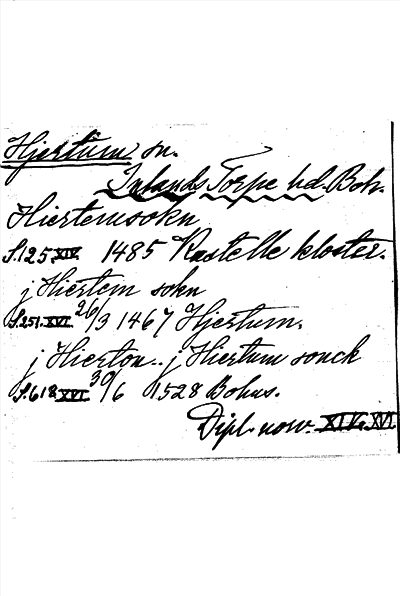 Hjertum sn.
Inlands Torpe hd. Boh.
Hiertemsokn
S.125 XIV. 1485 Kastelle kloster.
j Hiertem sokn
S.251. XVI. 26/3 1467 Hjertum.
j Hierton.. j Hiertum sonck
S.618 XVI. 30/6 1528 Bohus.
Dipl. norv. XIV. XVI.